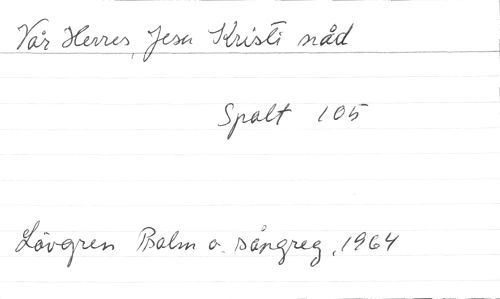 Vår Herres, Jesu Kristi nåd
Spalt 105
Lövgren Psalm o. sångreg, 1964